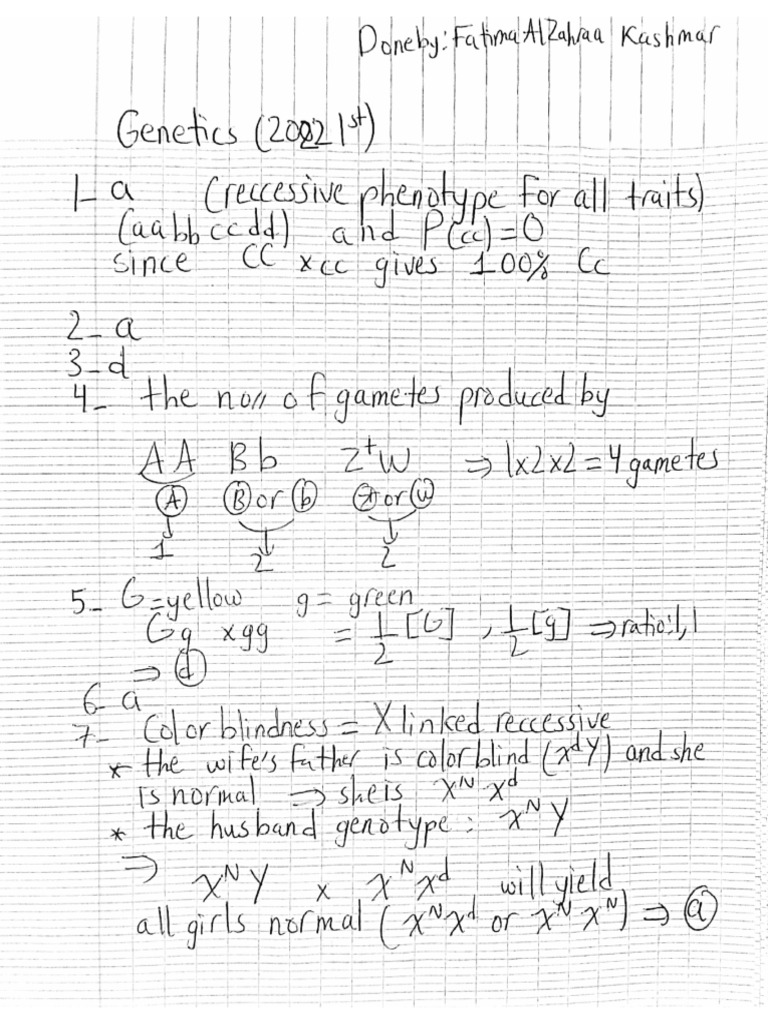 Done by: Fatima AlZahraa Kashmar
Genetics (2022 1st)
1- a (reccessive phenotype for all traits)
(aabbccdd) and P(cc)=0
since CC x cc gives 100% Cc
2- a
3- d
4- the no// of gametes produced by
AA Bb Z⁺W ⇒ 1x2x2 = 4 gametes
A B or b Z⁺ or W
1 2 2
5- G=yellow g= green
Gg x gg = 1/2 [G] , 1/2 [g] ⇒ ratio:1,1
⇒ d
6- a
7- Color blindness = X linked reccessive
* the wife's father is color blind (XᵈY) and she
is normal → she is XᴺXᵈ
* the husband genotype: XᴺY
⇒ XᴺY x XᴺXᵈ will yield
all girls normal (XᴺXᵈ or XᴺXᴺ) ⇒ a